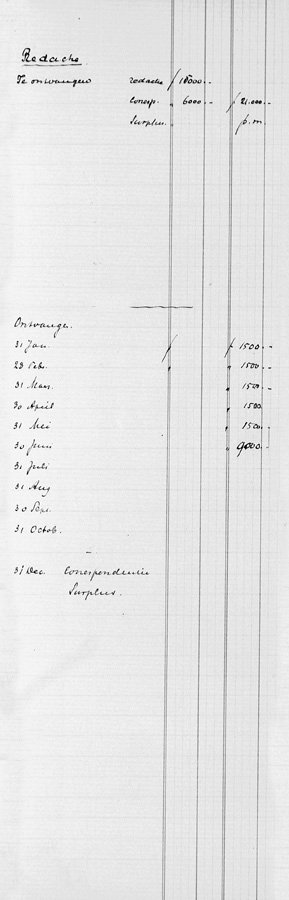 Redactie
Te ontvangen redactie ƒ 15000.--
Corresp. " 6000.-- ƒ 21.000.--
Surplus " p.m.
Ontvangen.
31 Jan. ƒ ƒ 1500.--
28 Febr. " " 1500.--
31 Mars. " 1500.--
30 April " 1500.
31 Mei " 1500.-
30 Juni " 9000.--
31 Juli
31 Aug
30 Sept.
31 Octob.
31 Dec. Correspondentie
Surplus.